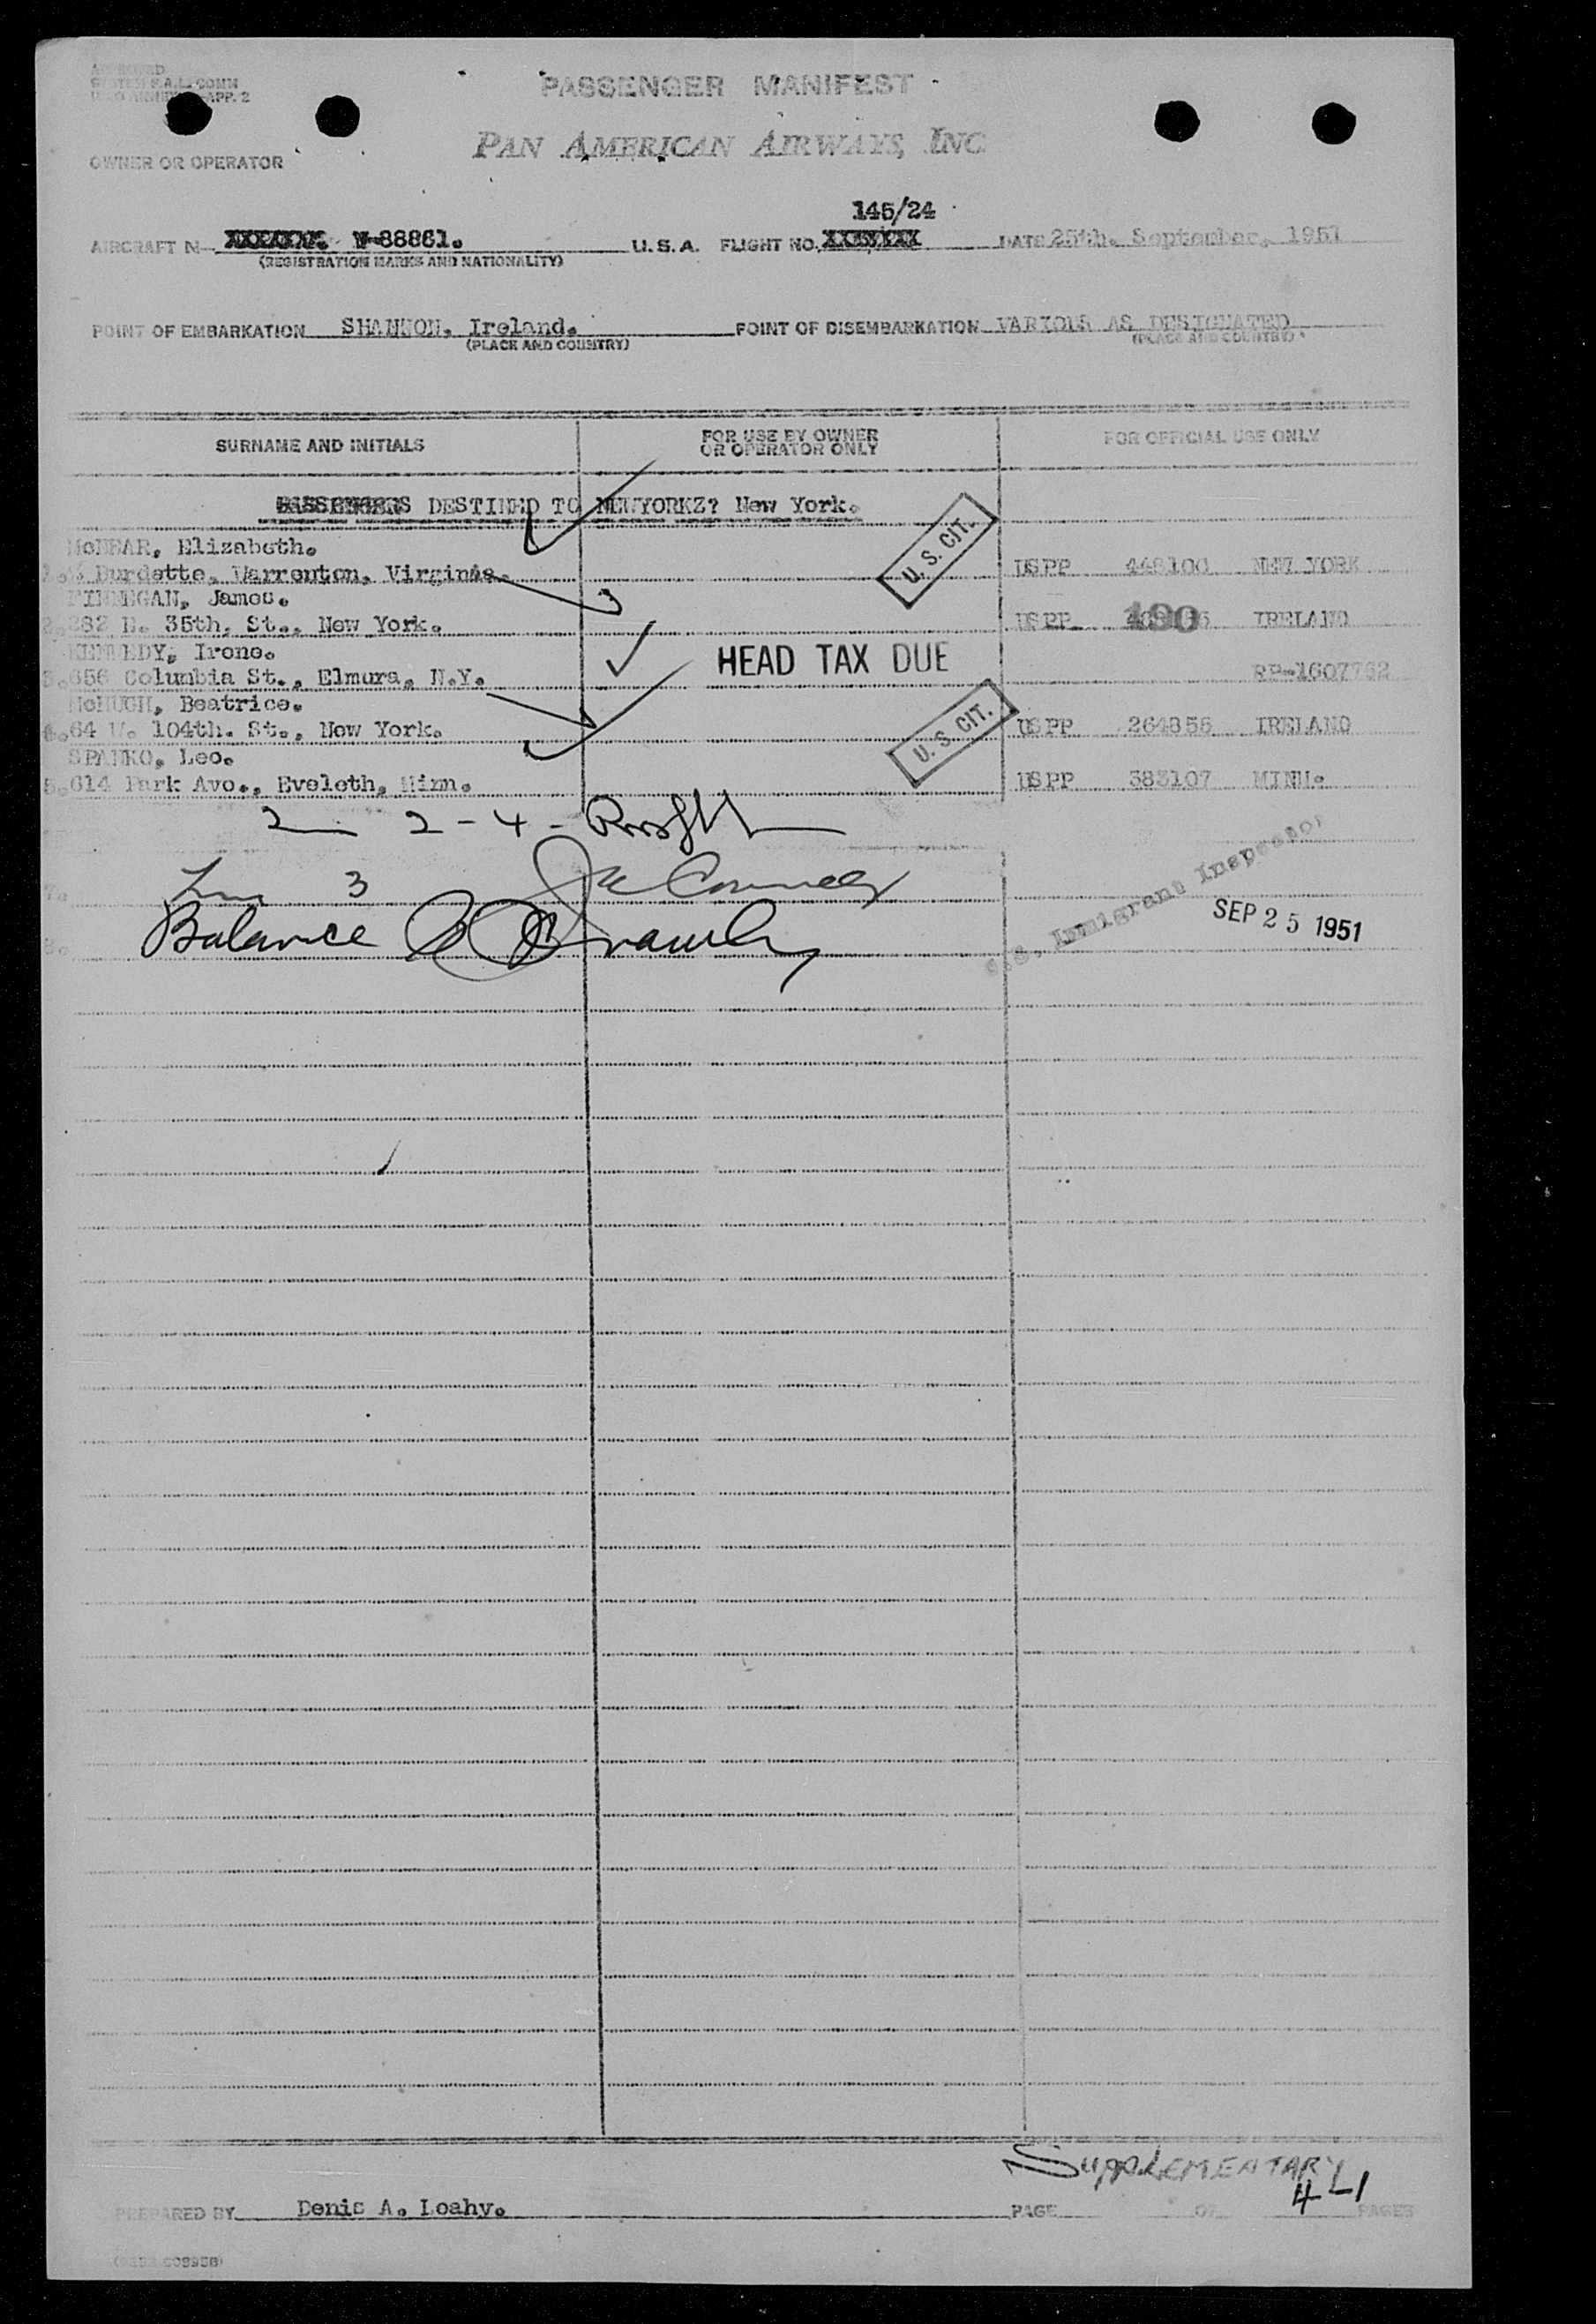 APP. 2
PASSENGER MANIFEST
PAN AMERICAN AIRWAYS, INC.
OWNER OR OPERATOR
145/24
AIRCRAFT N-88861. U.S.A. FLIGHT NO. DATE 25th. September, 1951
(REGISTRATION MARKS AND NATIONALITY)
POINT OF EMBARKATION SHANNON, Ireland. POINT OF DISEMBARKATION VARIOUS AS DESIGNATED
(PLACE AND COUNTRY) (PLACE AND COUNTRY)
SURNAME AND INITIALS FOR USE BY OWNER OR OPERATOR ONLY FOR OFFICIAL USE ONLY
PASSENGERS DESTINED TO NEWYORKZ? New York.
Elizabeth.
Burdette, Warrenton, Virginia. U. S. CIT. USPP 448100 NEW YORK
FINNEGAN, James.
2. 282 E. 35th. St., New York. USPP 190 IRELAND
KENNEDY, Irene.
3. 656 Columbia St., Elmura, N.Y. HEAD TAX DUE RP-1607762
McHUGH, Beatrice.
4. 64 W. 104th. St., New York. U. S. CIT. USPP 264856 IRELAND
SPANKO, Leo.
5. 614 Park Ave., Eveleth, Minn. USPP 383107 MINN.
2 - 4 -
7. 3
8. Balance
U.S. Immigrant Inspector
SEP 25 1951
SUPPLEMENTARY
4-1
PREPARED BY Denis A. Leahy. PAGE OF PAGES